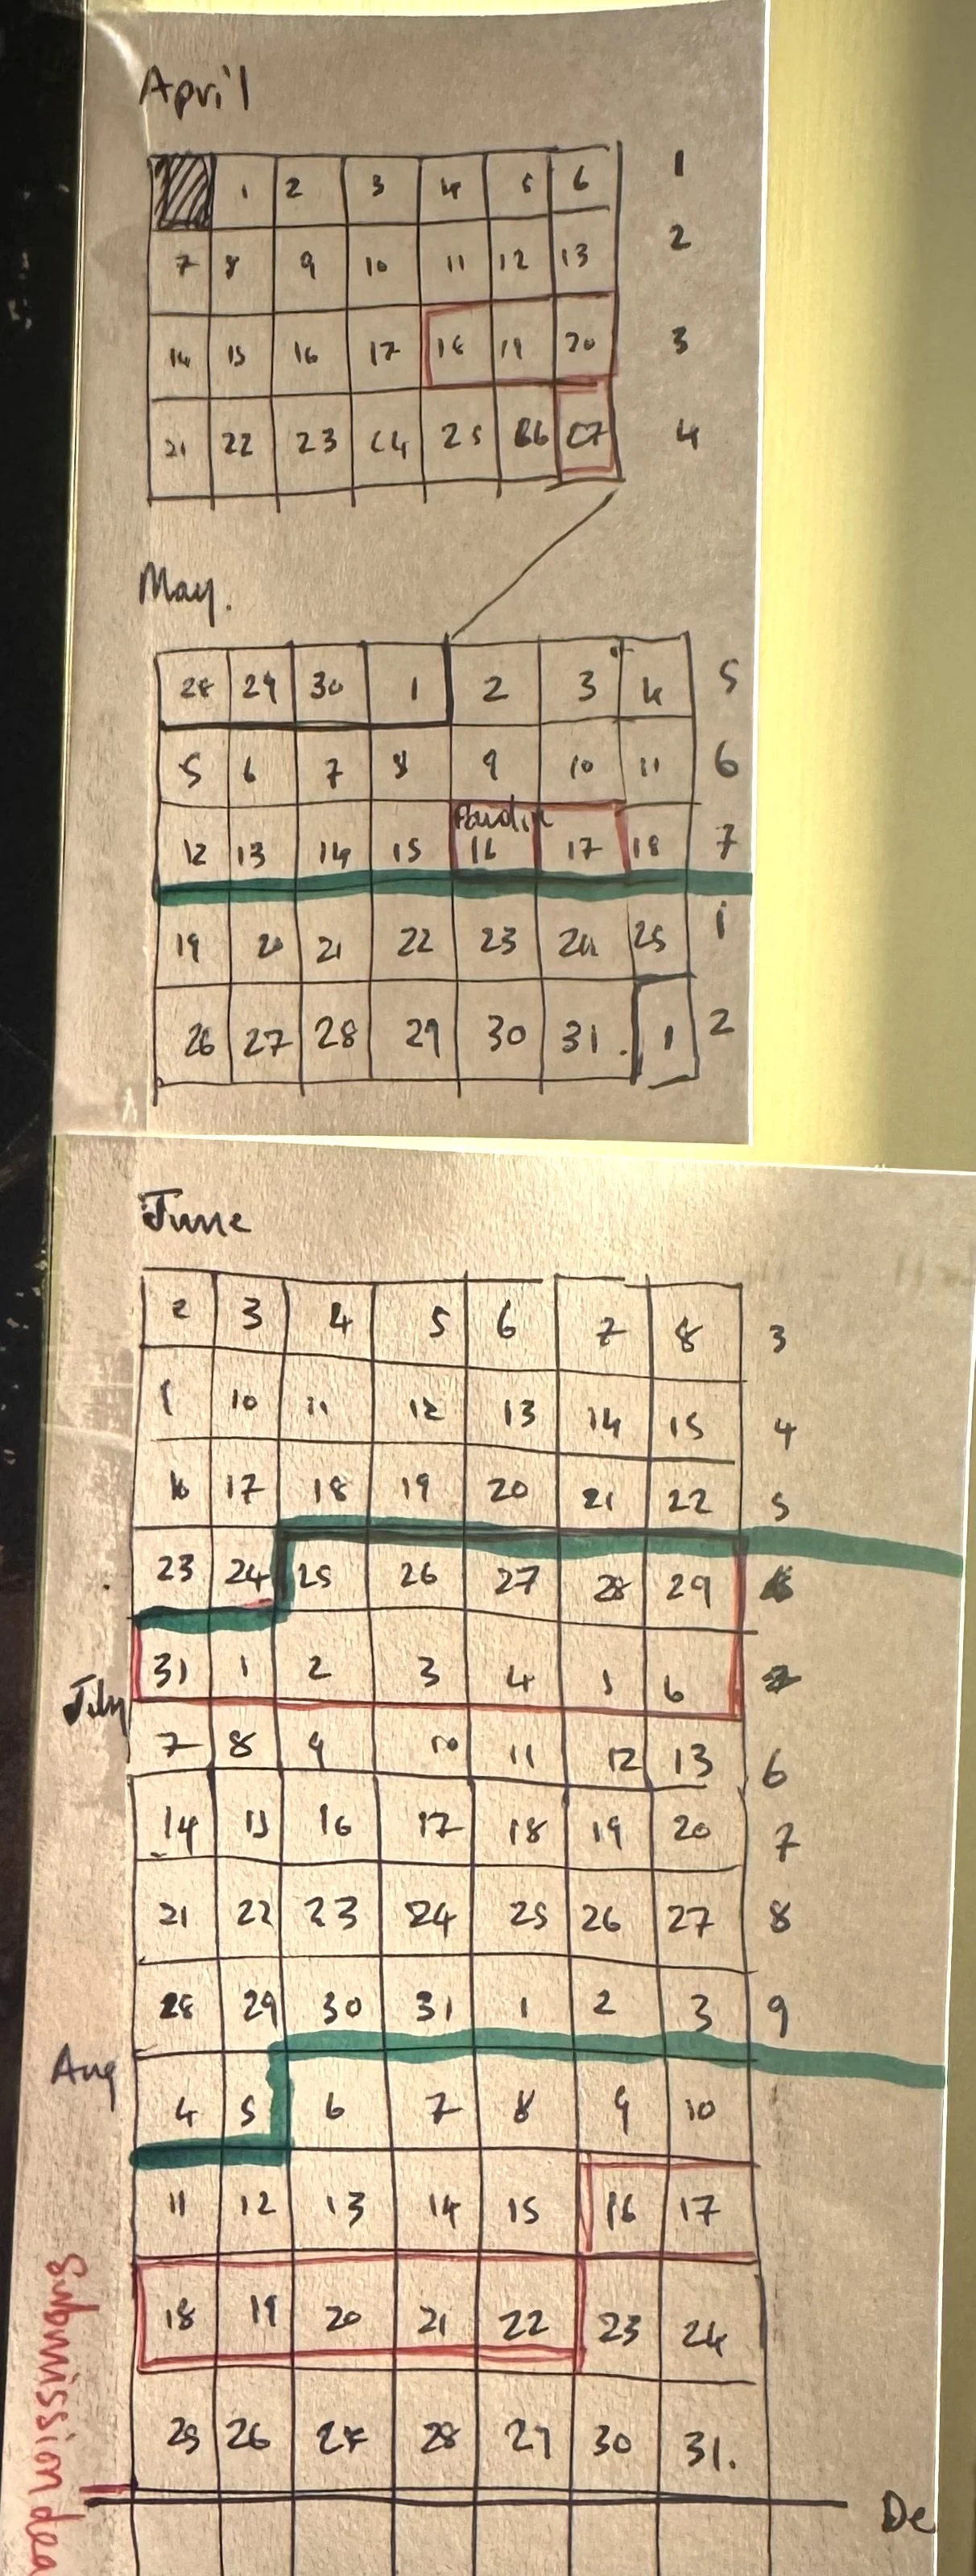 April
1 2 3 4 5 6 1
7 8 9 10 11 12 13 2
14 15 16 17 18 19 20 3
21 22 23 24 25 26 27 4
May.
28 29 30 1 2 3 4 5
5 6 7 8 9 10 11 6
12 13 14 15 16 17 18 7
19 20 21 22 23 24 25 1
26 27 28 29 30 31. 1 2
June
2 3 4 5 6 7 8 3
9 10 11 12 13 14 15 4
16 17 18 19 20 21 22 5
23 24 25 26 27 28 29
31 1 2 3 4 5 6
July
7 8 9 10 11 12 13 6
14 15 16 17 18 19 20 7
21 22 23 24 25 26 27 8
28 29 30 31 1 2 3 9
Aug
4 5 6 7 8 9 10
11 12 13 14 15 16 17
18 19 20 21 22 23 24
25 26 27 28 29 30 31.
Submission dea
De